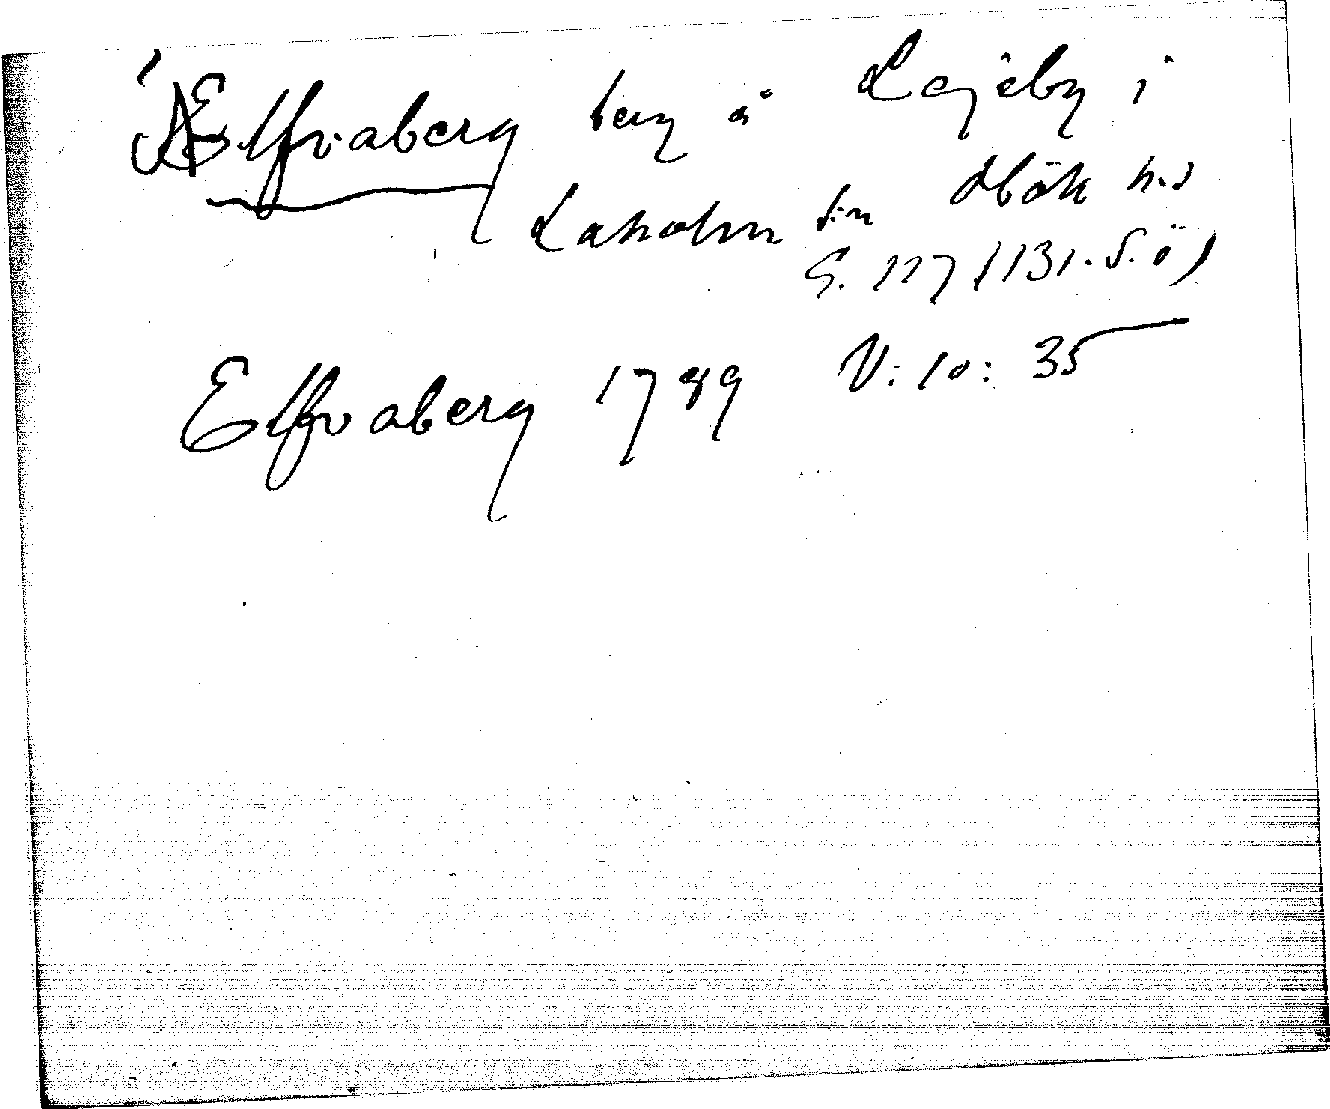 Elfvaberg berg å Lejeby i
Laholm sn Höök hd
G. 117 (131. S. ö)
Elfvaberg 1789 V: 10: 35